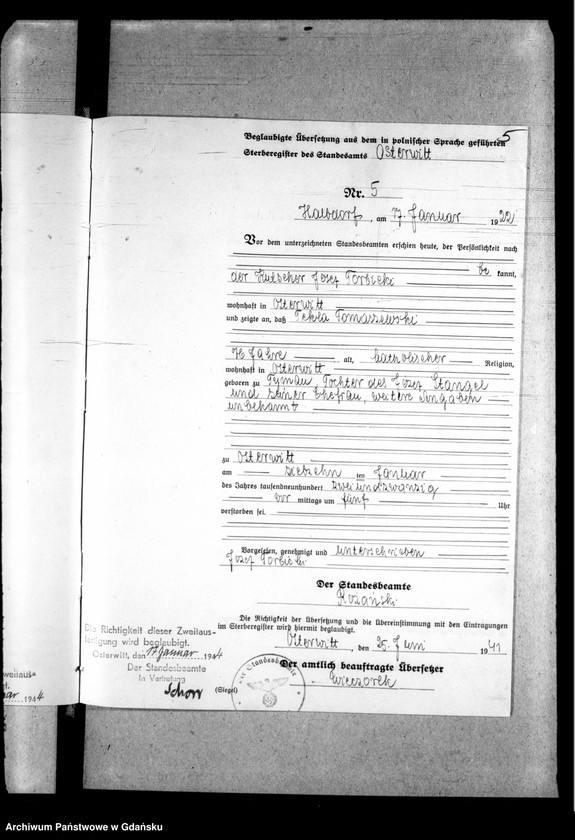 5
Beglaubigte Übersetzung aus dem in polnischer Sprache geführten
Sterberegister des Standesamts Osterwitt
Nr. 5
am 17. Januar 1922
Vor dem unterzeichneten Standesbeamten erschien heute, der Persönlichkeit nach
be kannt,
der Kutscher Josef Torbicki
wohnhaft in Osterwitt
und zeigte an, daß Tekla Tomaszewski
Jahre alt, katholischer Religion,
wohnhaft in Osterwitt
geboren zu Tymau, Tochter des Josef Stangel
und seiner Ehefrau, weitere Angaben
unbekannt
zu Osterwitt
am siebzehn ten Januar
des Jahres tausendneunhundert zweiundzwanzig
vor mittags um fünf Uhr
verstorben sei.
Vorgelesen, genehmigt und unterschrieben
Josef Torbicki
Der Standesbeamte
Rozański
Die Richtigkeit der Übersetzung und die Übereinstimmung mit den Eintragungen
im Sterberegister wird hiermit beglaubigt.
Osterwitt, den 25. Juni 1941
Der amtlich beauftragte Übersetzer
Wieczorek
(Siegel)
Die Richtigkeit dieser Zweitaus-
fertigung wird beglaubigt.
Osterwitt, den 17. Januar 1944
Der Standesbeamte
In Vertretung
Schorr
Archiwum Państwowe w Gdańsku